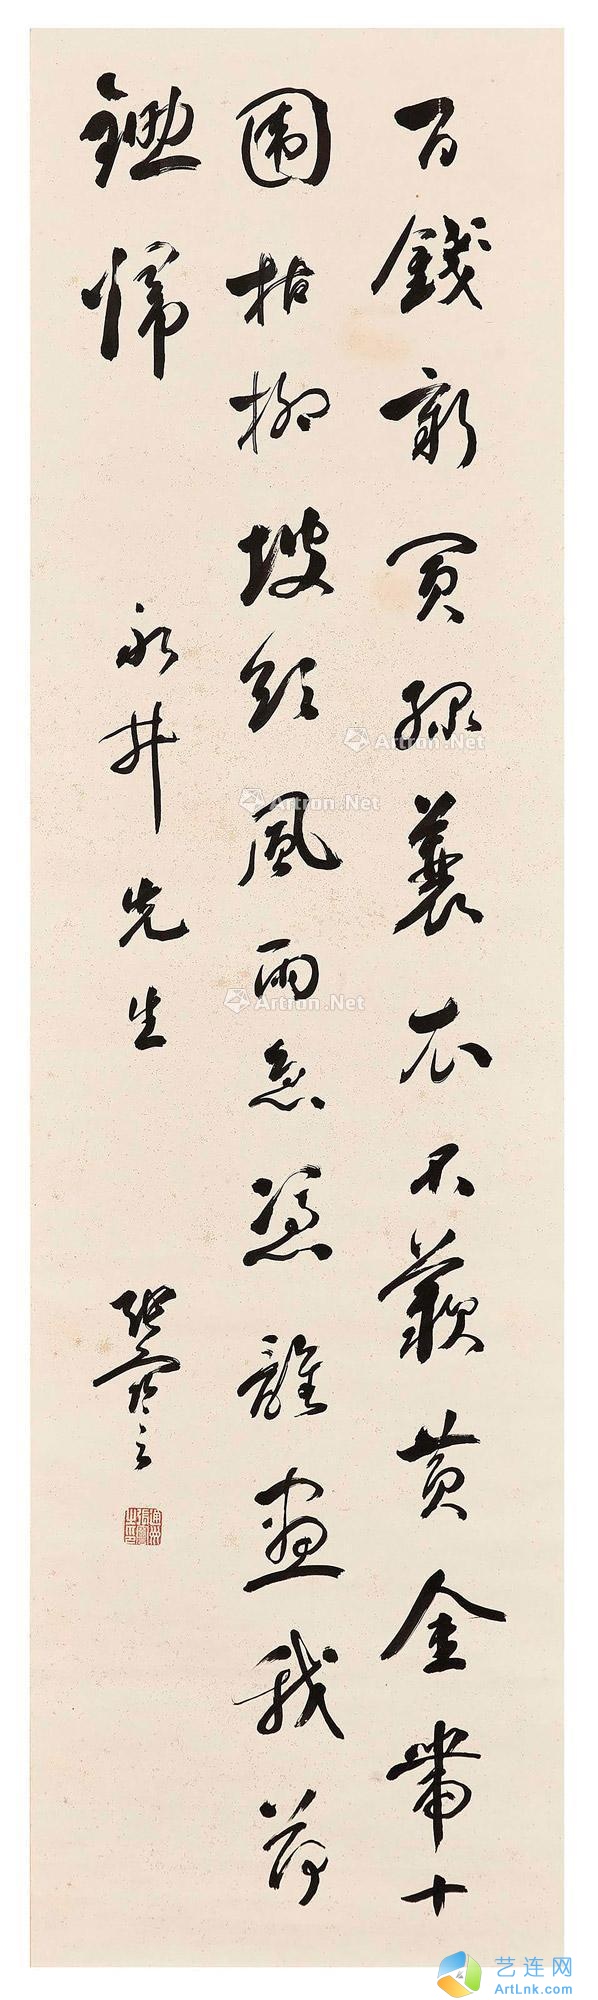 百錢新買綠蓑衣不羨黃金帶十
圍枯柳坡頭風雨急憑誰畫我荷
鋤歸
永井先生
張謇
通州張謇之印
Artron.Net
Artron.Net
Artron.Net
艺连网
ArtLnk.com